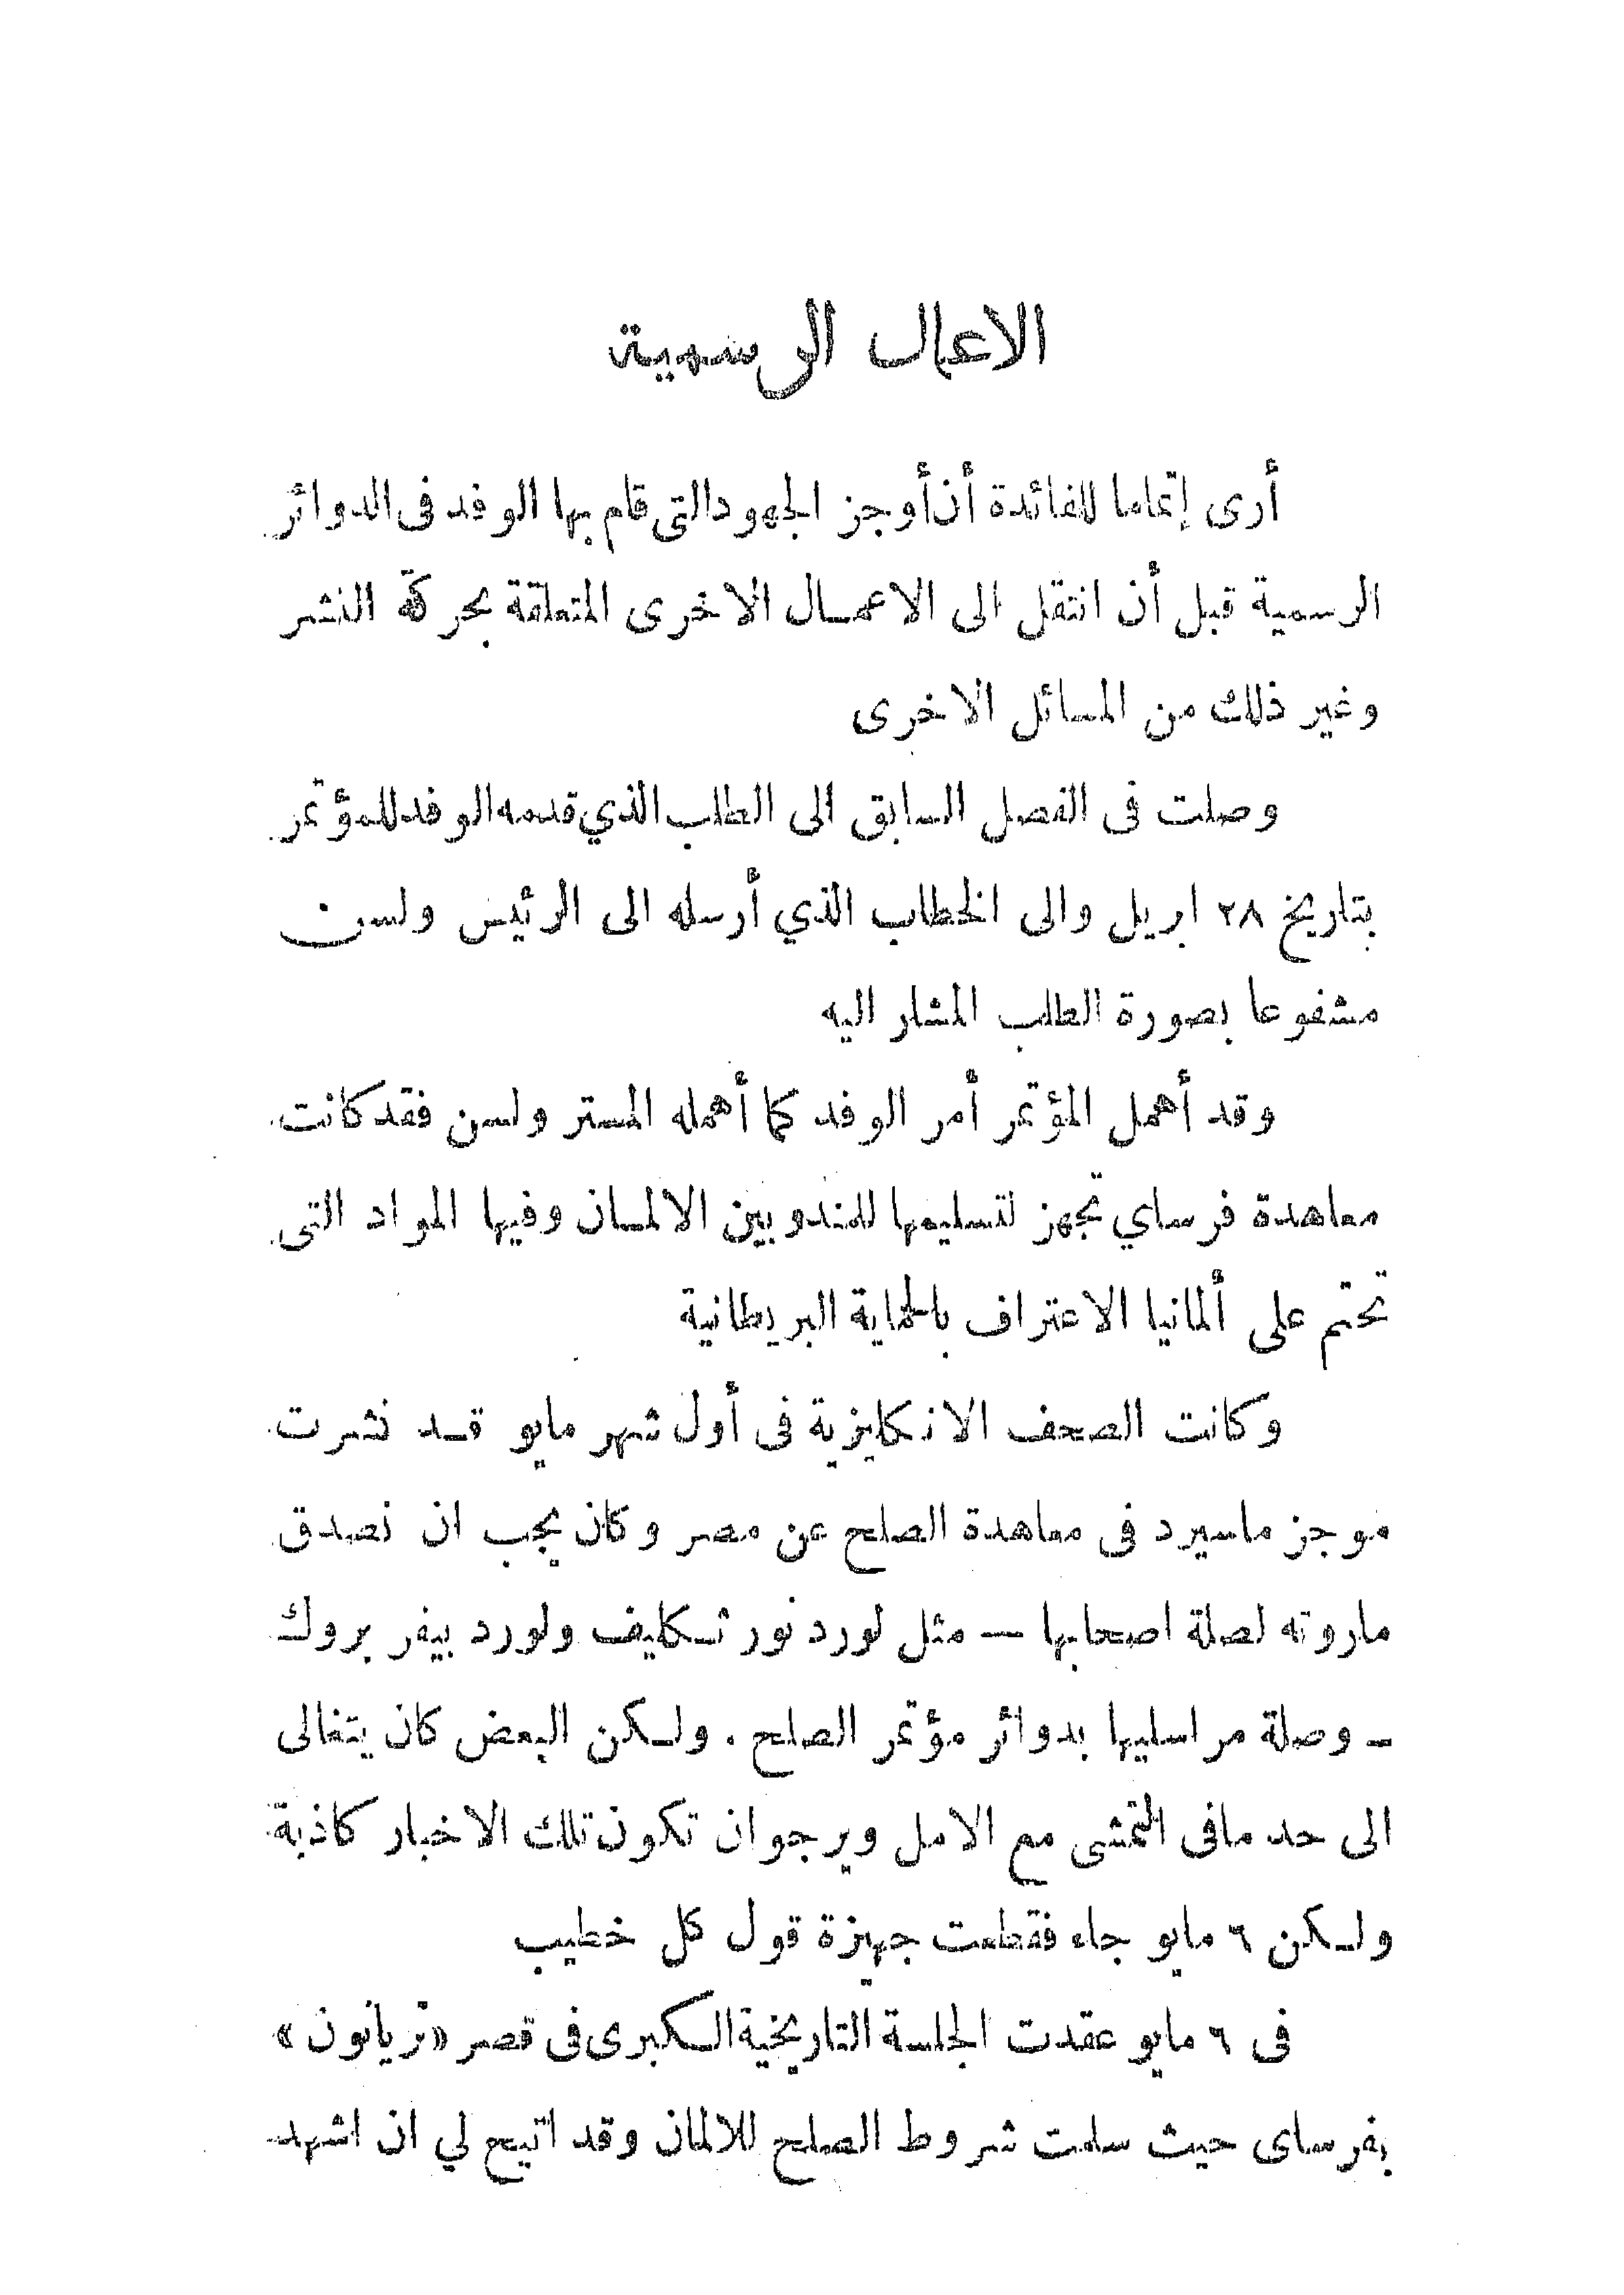 الاعمال الرسمية
أرى إتماما للفائدة أن أوجز الجهود التى قام بها الوفد فى الدوائر
الرسمية قبل أن انتقل الى الاعمال الاخرى المتعلقة بحركة النشر
وغير ذلك من المسائل الاخرى
وصلت فى الفصل السابق الى الطلب الذي قدمه الوفد للمؤتمر
بتاريخ ٢٨ ابريل والى الخطاب الذي أرسله الى الرئيس ولسن
مشفوعا بصورة الطلب المشار اليه
وقد أهمل المؤتمر أمر الوفد كما أهمله المستر ولسن فقد كانت
معاهدة فرساي تجهز لتسليمها للمندوبين الالمان وفيها المواد التى
تحتم على ألمانيا الاعتراف بالحماية البريطانية
وكانت الصحف الانكليزية فى أول شهر مايو قد نشرت
موجز ماسيرد فى معاهدة الصلح عن مصر وكان يجب ان نصدق
ماروته لصلة اصحابها — مثل لورد نورثكليف ولورد بيفر بروك
- وصلة مراسليها بدوائر مؤتمر الصلح . ولكن البعض كان يتغالى
الى حد مافى التمشى مع الامل ويرجو ان تكون تلك الاخبار كاذبة
ولكن ٦ مايو جاء فقطعت جهيزة قول كل خطيب
فى ٦ مايو عقدت الجلسة التاريخية الكبرى فى قصر «تريانون»
بفرساى حيث سلمت شروط الصلح للالمان وقد اتيح لي ان اشهد